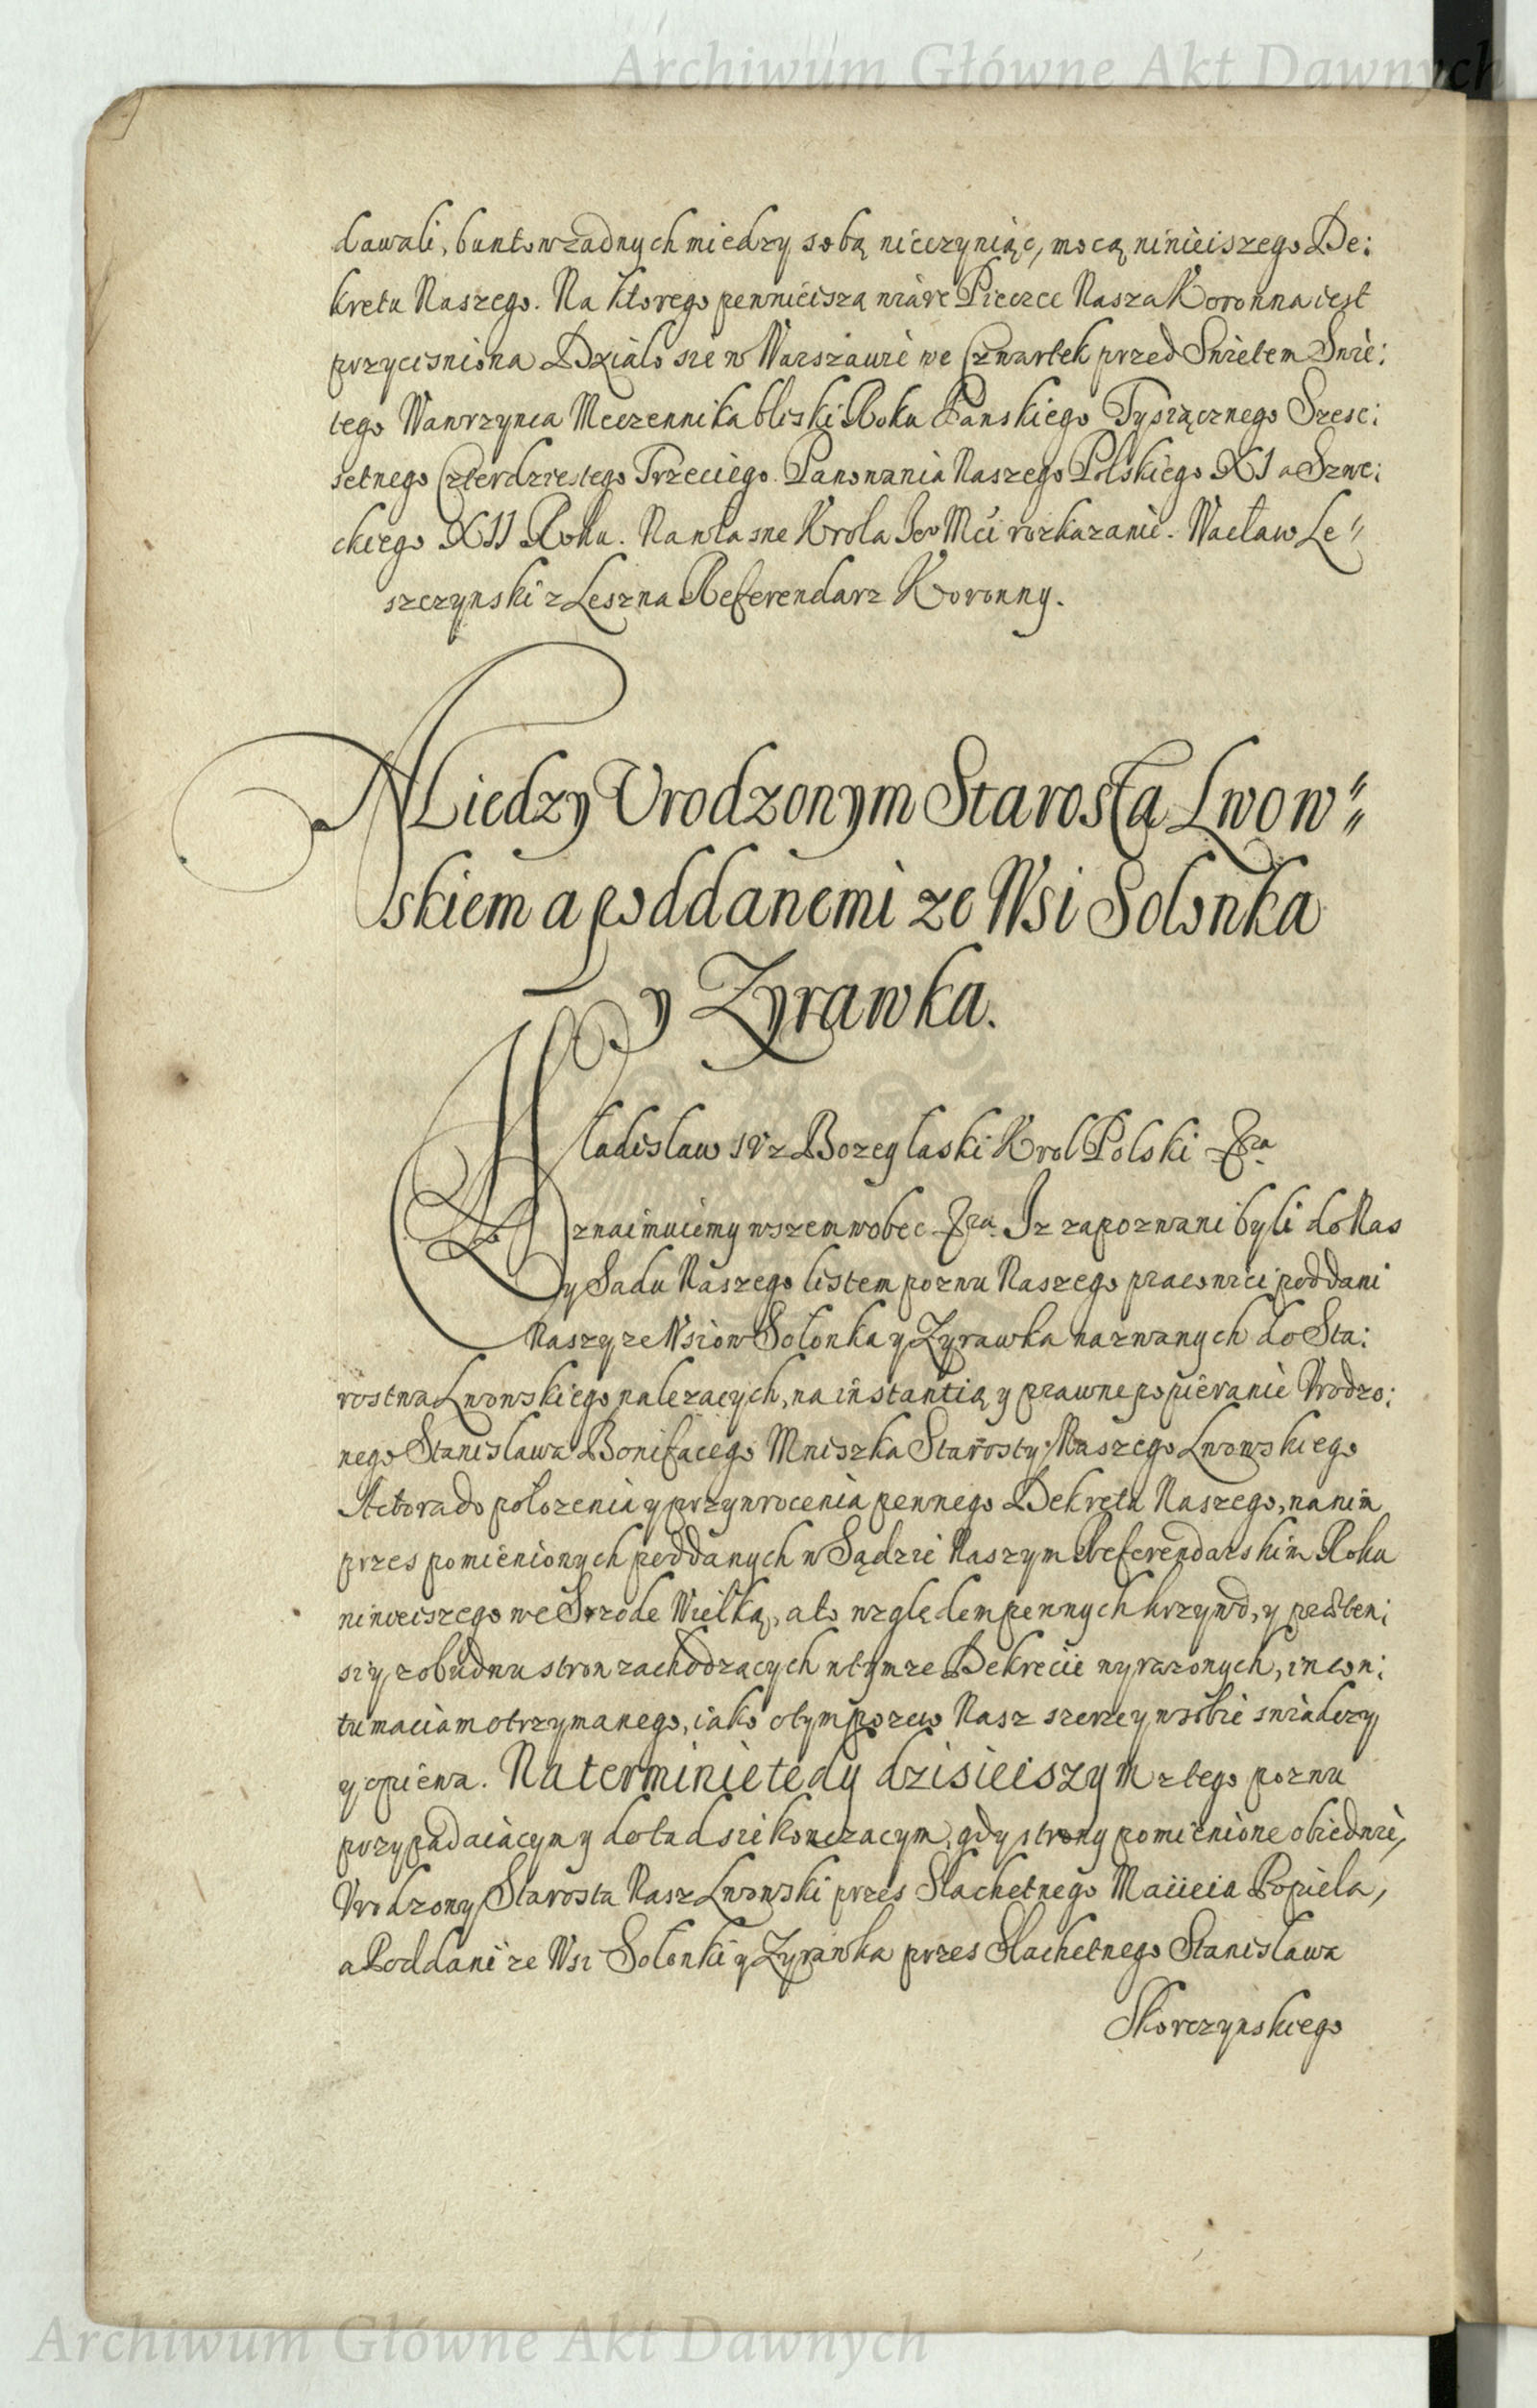 Archiwum Główne Akt Dawnych
dawali, buntow zadnych miedzy sobą nieczyniąc, mocą ninieiszego De:
kretu Naszego. Na ktorego pewnieiszą wiare Pieczec Nasza Koronna iest
przycisniona Dzialo sie w Warszawie we Czwartek przed Swietem Swie:
tego Wawrzynca Meczennika bliski Roku Panskiego Tysiącznego Szesc:
setnego Czterdziestego Trzeciego. Panowania Naszego Polskiego XI a Szwe:
ckiego XII Roku. Na własne Krola Jeo Mci rozkazanie. Wacław Le"
szczynski z Leszna Referendarz Koronny.
Miedzy Vrodzonym Starostą Lwow"
skiem a poddanemi ze Wsi Solonka
y Zyrawka.
Wladislaw IV z Bozey laski Krol Polski &ra
Oznaimuiemy wszem wobec &ra. Iz zapozwani byli do Nas
y Sadu Naszego listem pozwu Naszego pracowici poddani
Naszy ze Wsiow Solonka y Zyrawka nazwanych do Sta:
rostwa Lwowskiego nalezacych, na instantią y prawne popieranie Vrodzo:
nego Stanislawa Bonifacego Mniszka Starosty Naszego Lwowskiego
Actora do polozenia y przywrocenia pewnego Dekretu Naszego, na nim
przes pomienionych poddanych w Sądzie Naszym Referendarskim Roku
ninieiszego we Srzode Wielką, a to względem pewnych krzywd, y praeten:
siy, z obudwu stron zachodzacych w tymze Dekrecie wyrazonych, in con:
tumaciam otrzymanego, iako o tym pozew Nasz szerzey w sobie swiadczy
y opiewa. Na terminie tedy dzisieiszym z tego pozwu
przypadaiącym y dotad sie konczacym, gdy strony pomienione obiedwie,
Vrodzony Starosta Nasz Lwowski przes Slachetnego Macieia Popiela,
a Poddani ze Wsi Solonki y Zyrawka przes Slachetnego Stanislawa
Skorczynskiego
Archiwum Główne Akt Dawnych